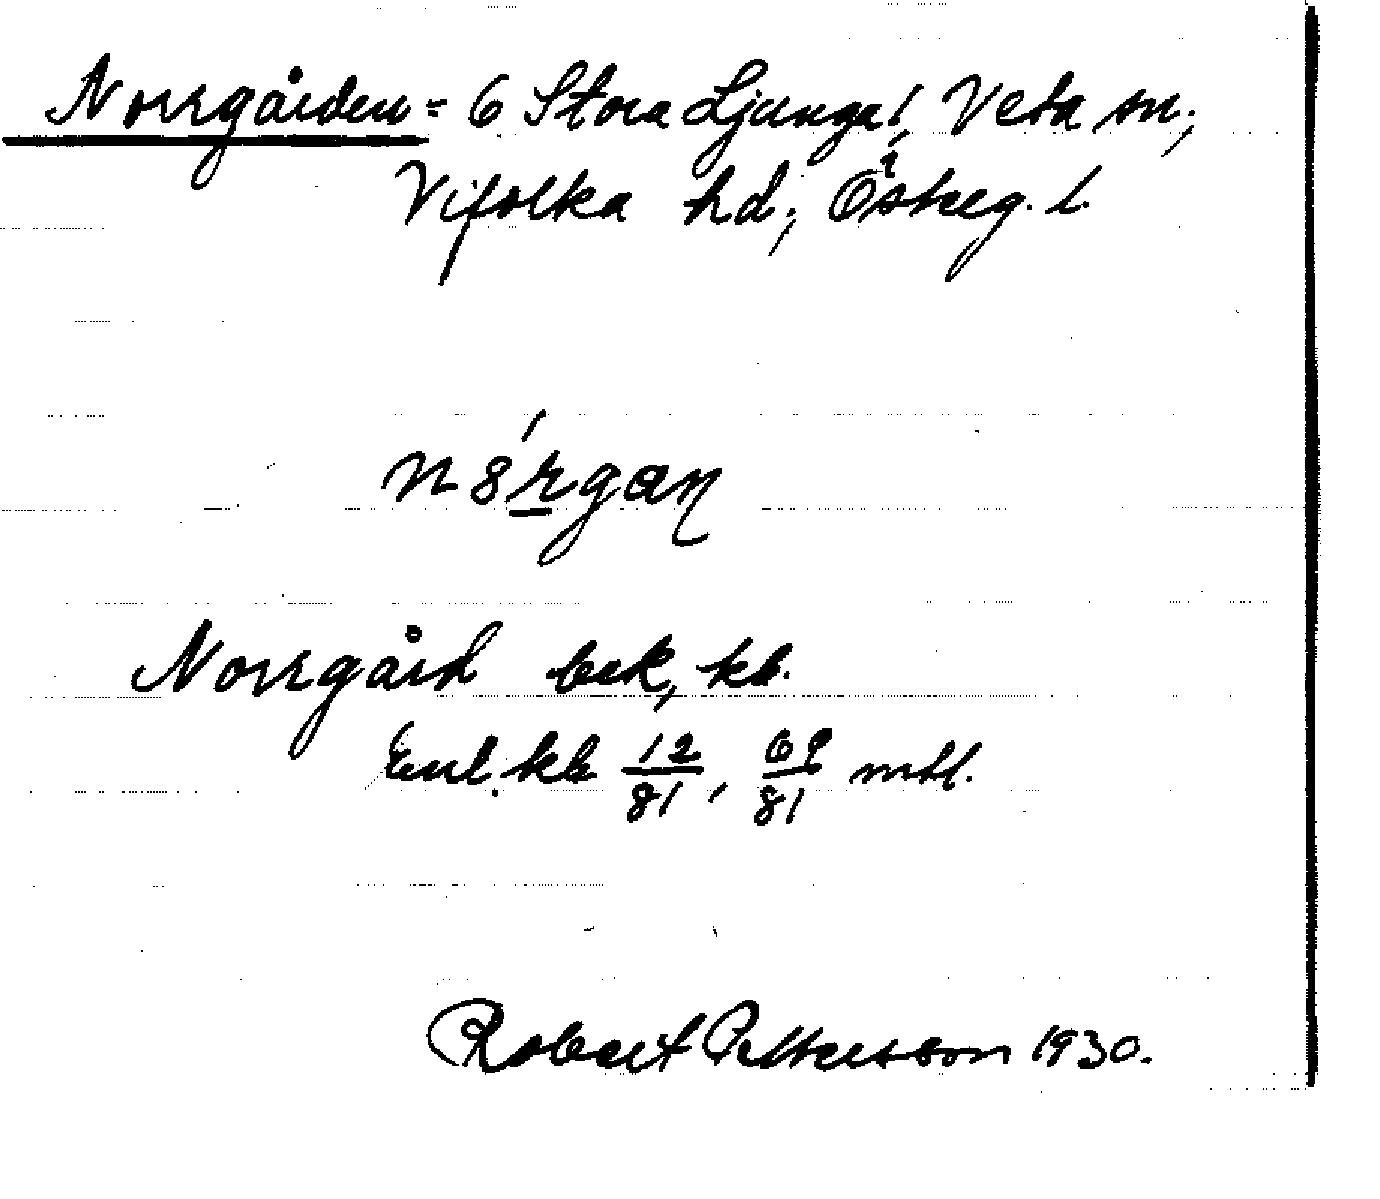 Norrgården = 6 Stora Ljunga, Veta sn,
Vifolka hd, Östterg. l.
Norrgård bek, kb.
Enl. kb 12/81, 69/81 mtl.
Robert Pettersson 1930.